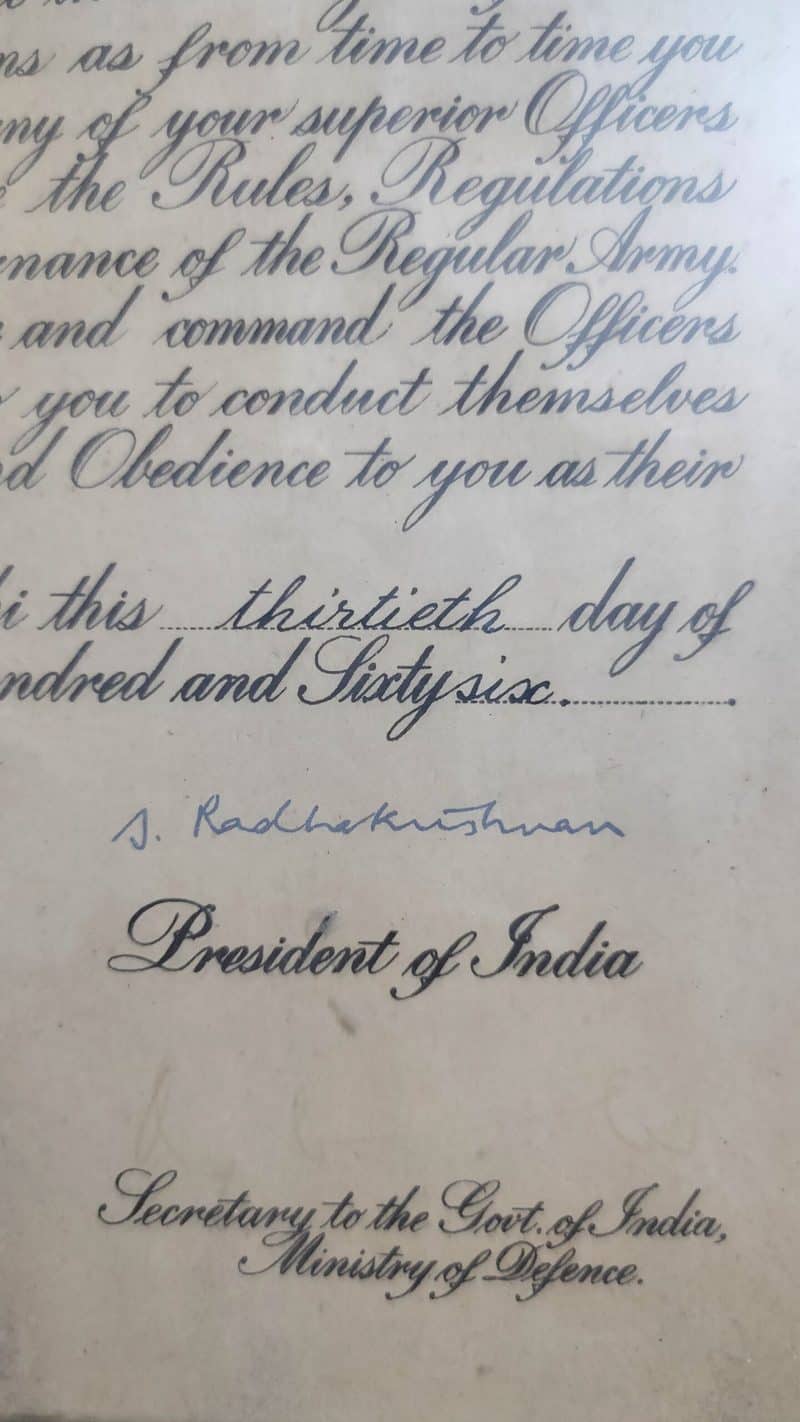 ns as from time to time you
ny of your superior Officers
the Rules, Regulations
nance of the Regular Army.
and command the Officers
you to conduct themselves
d Obedience to you as their
i this thirtieth day of
ndred and Sixty six.
S. Radhakrishnan
President of India
Secretary to the Govt. of India,
Ministry of Defence.